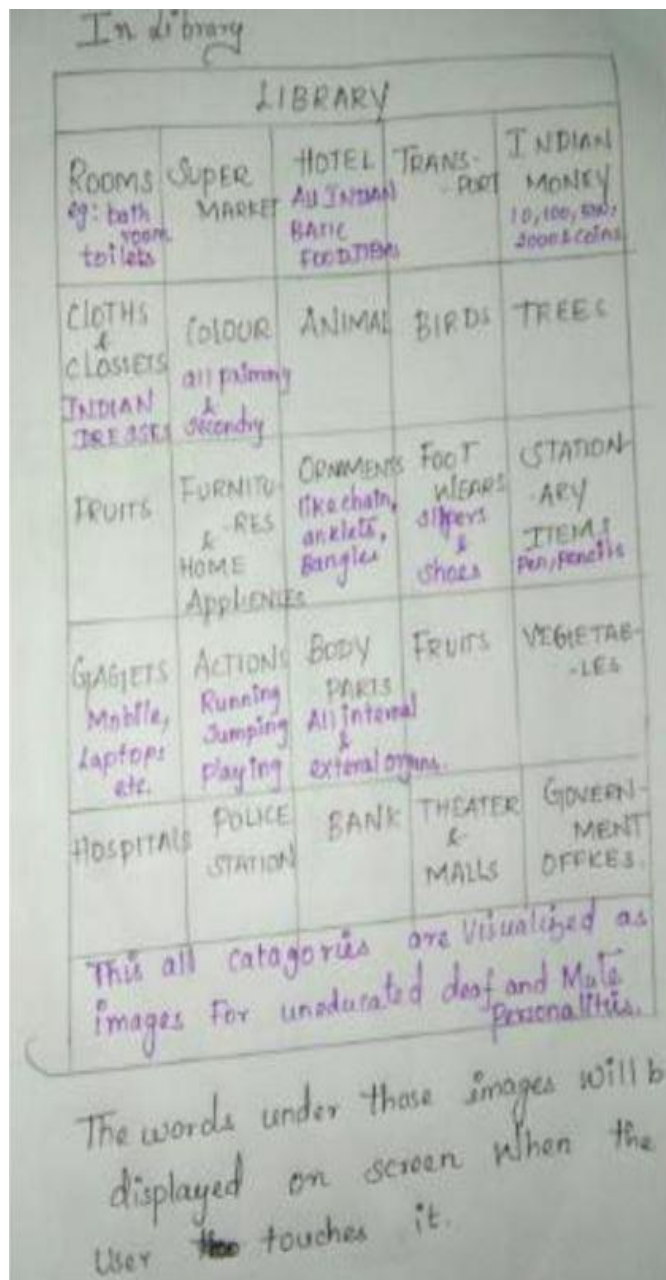 In Library
LIBRARY
ROOMS
eg: bath
room
toilets
SUPER
MARKET
HOTEL
All INDIAN
BASIC
FOOD ITEMS
TRANS-
PORT
INDIAN
MONEY
10, 100, 500,
2000 & coins
CLOTHS
&
CLOSSETS
INDIAN
DRESSES
COLOUR
all primary
&
secondry
ANIMAL
BIRDS
TREES
FRUITS
FURNITU-
-RES
&
HOME
AppLiENCES
ORNMENTS
like chain,
anklets,
Bangles
FOOT
WEARS
slipers
&
shoes
STATION-
-ARY
ITEMS
Pen, Pencils
GAGJETS
Mobile,
Laptops
etc.
ACTIONS
Running
Jumping
playing
BODY
PARTS
All internal
&
external organs.
FRUITS
VEGIETAB-
-LES
HOSPITALS
POLICE
STATION
BANK
THEATER
&
MALLS
GOVERN-
MENT
OFFICES.
This all catagories are Visualized as
images For uneducated deaf and Mute
personalities.
The words under those images will b
displayed on screen when the
User touches it.